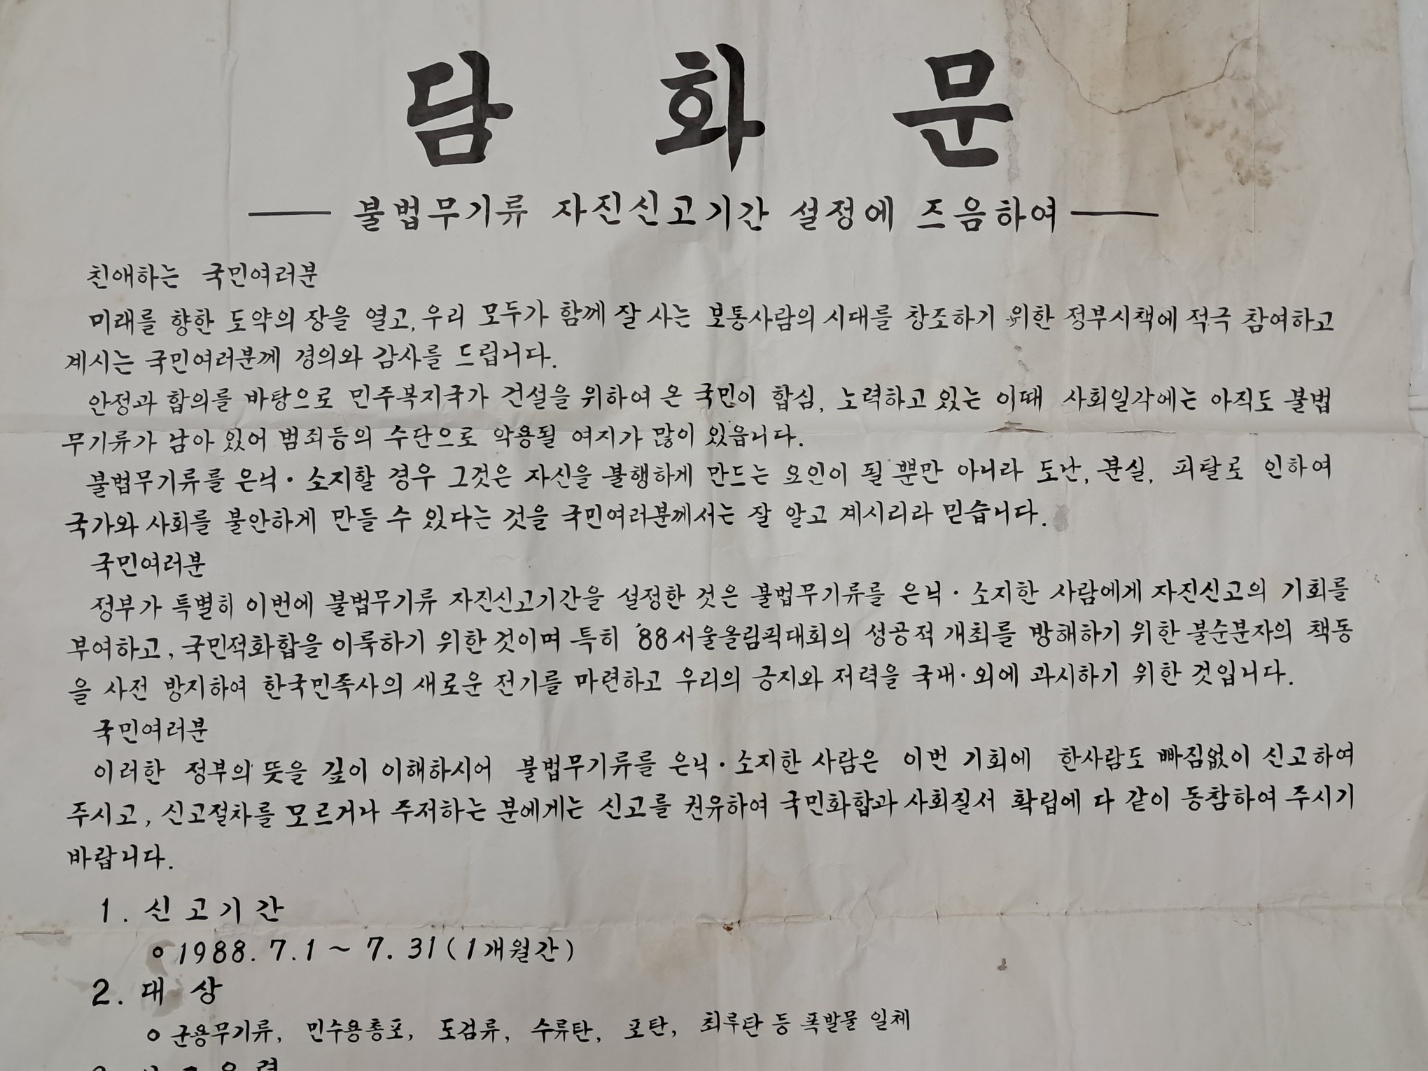 담 화 문
불법무기류 자진신고기간 설정에 즈음하여
친애하는 국민여러분
미래를 향한 도약의 장을 열고, 우리 모두가 함께 잘 사는 보통사람의 시대를 창조하기 위한 정부시책에 적극 참여하고
계시는 국민여러분께 경의와 감사를 드립니다.
안정과 합의를 바탕으로 민주복지국가 건설을 위하여 온 국민이 합심, 노력하고 있는 이때 사회일각에는 아직도 불법
무기류가 남아 있어 범죄등의 수단으로 악용될 여지가 많이 있읍니다.
불법무기류를 은닉·소지할 경우 그것은 자신을 불행하게 만드는 요인이 될 뿐만 아니라 도난, 분실, 피탈로 인하여
국가와 사회를 불안하게 만들 수 있다는 것을 국민여러분께서는 잘 알고 계시리라 믿습니다.
국민여러분
정부가 특별히 이번에 불법무기류 자진신고기간을 설정한 것은 불법무기류를 은닉·소지한 사람에게 자진신고의 기회를
부여하고, 국민적화합을 이룩하기 위한 것이며 특히 '88서울올림픽대회의 성공적 개최를 방해하기 위한 불순분자의 책동
을 사전 방지하여 한국민족사의 새로운 전기를 마련하고 우리의 긍지와 저력을 국내·외에 과시하기 위한 것입니다.
국민여러분
이러한 정부의 뜻을 깊이 이해하시어 불법무기류를 은닉·소지한 사람은 이번 기회에 한사람도 빠짐없이 신고하여
주시고, 신고절차를 모르거나 주저하는 분에게는 신고를 권유하여 국민화합과 사회질서 확립에 다 같이 동참하여 주시기
바랍니다.
1. 신고기간
o 1988. 7. 1 ~ 7. 31 (1개월간)
2. 대 상
o 군용무기류, 민수용총포, 도검류, 수류탄, 포탄, 최루탄 등 폭발물 일체